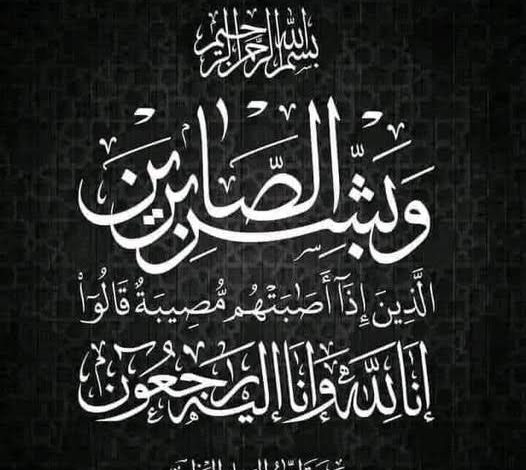 بسم الله الرحمن الرحيم
وَبَشِّرِ الصَّابِرِينَ
الَّذِينَ إِذَآ أَصَابَتْهُم مُّصِيبَةٌ قَالُوٓا۟
إنا لله وإنا إليه راجعون